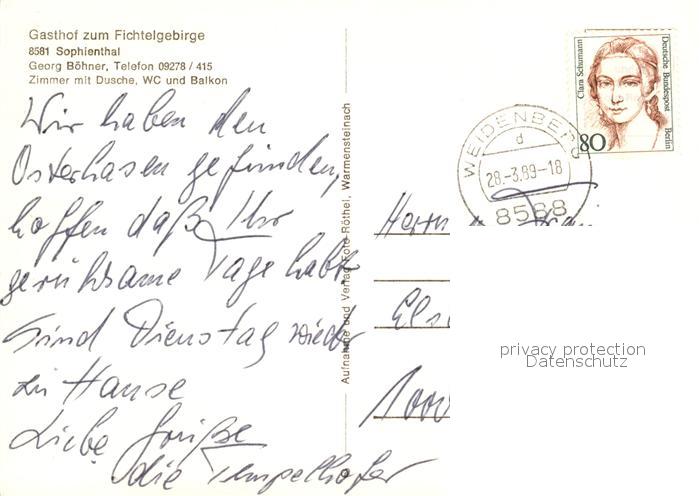 Gasthof zum Fichtelgebirge
8581 Sophienthal
Georg Böhner, Telefon 09278 / 415
Zimmer mit Dusche, WC und Balkon
Wir haben den
Osterhasen gefunden,
hoffen daß Ihr
geruhsame Tage habt
Sind Dienstag wieder
zu Hause
Liebe Grüße
die Tempelhofer
Aufnahme und Verlag Foto Röthel, Warmensteinach
Clara Schumann
Deutsche Bundespost Berlin
80
WEIDENBERG
d
28.-3.89-18
8588
Herrn
Els
1000
privacy protection
Datenschutz